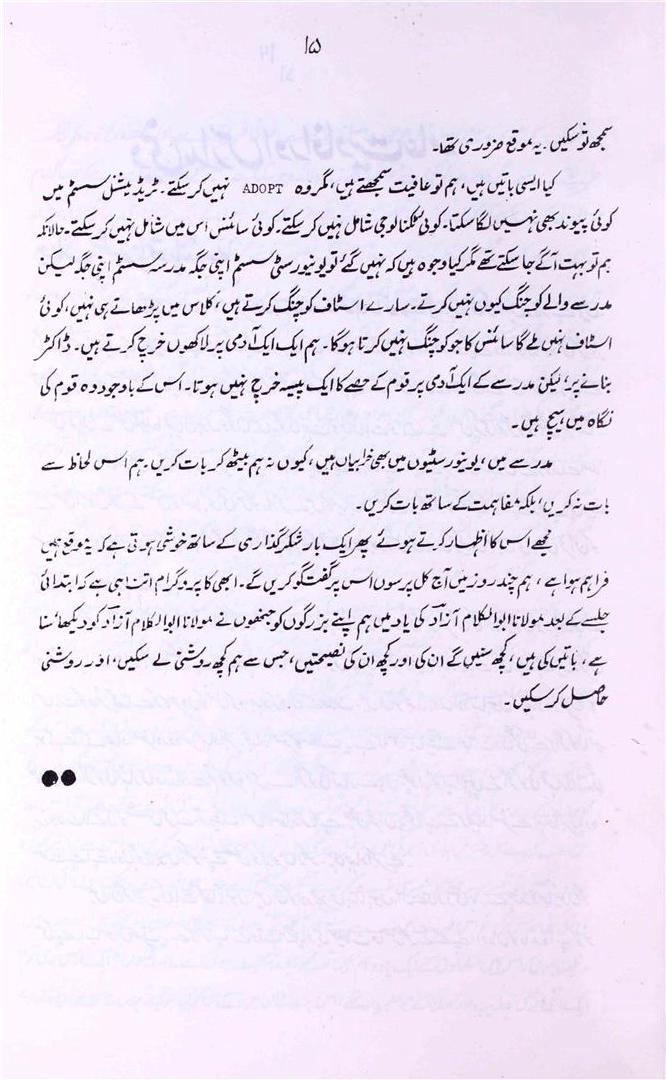 ۱۵
سمجھ تو سکیں۔ یہ موقع ضروری تھا۔
کیا ایسی باتیں ہیں، ہم تو عافیت سمجھتے ہیں، مگر وہ ADOPT نہیں کر سکتے۔ ٹریڈیشنل سسٹم میں
کوئی پیوند بھی نہیں لگا سکتا۔ کوئی ٹکنالوجی شامل نہیں کر سکتے۔ کوئی سائنس اس میں شامل نہیں کر سکتے۔ حالانکہ
ہم تو بہت آگے جا سکتے تھے مگر کیا وجوہ ہیں کہ نہیں گئے تو یونیورسٹی سسٹم اپنی جگہ مدرسہ سسٹم اپنی جگہ لیکن
مدرسے والے کوچنگ کیوں نہیں کرتے۔ سارے اسٹاف کوچنگ کرتے ہیں، کلاس میں پڑھاتے ہی نہیں، کوئی
اسٹاف نہیں ملے گا سائنس کا جو کوچنگ نہیں کرتا ہوگا۔ ہم ایک ایک آدمی پر لاکھوں خرچ کرتے ہیں۔ ڈاکٹر
بنانے پر، لیکن مدرسے کے ایک آدمی پر قوم کے حصے کا ایک پیسہ خرچ نہیں ہوتا۔ اس کے باوجود وہ قوم کی
نگاہ میں ہیچ ہیں۔
مدرسے میں، یونیورسٹیوں میں بھی خرابیاں ہیں، کیوں نہ ہم بیٹھ کر بات کریں۔ ہم اس لحاظ سے
بات نہ کریں، بلکہ مفاہمت کے ساتھ بات کریں۔
مجھے اس کا اظہار کرتے ہوئے پھر ایک بار شکر گذاری کے ساتھ خوشی ہوتی ہے کہ یہ موقع ہمیں
فراہم ہوا ہے، ہم چند روز میں آج کل پرسوں اس پر گفت گو کریں گے۔ ابھی کا پروگرام اتنا ہی ہے کہ ابتدائی
جلسے کے بعد مولانا ابوالکلام آزاد کی یاد میں ہم اپنے بزرگوں کو جنھوں نے مولانا ابوالکلام آزاد کو دیکھا، سنا
ہے، باتیں کی ہیں، کچھ سنیں گے ان کی اور کچھ ان کی نصیحتیں، جس سے ہم کچھ روشنی لے سکیں، اور روشنی
حاصل کر سکیں۔